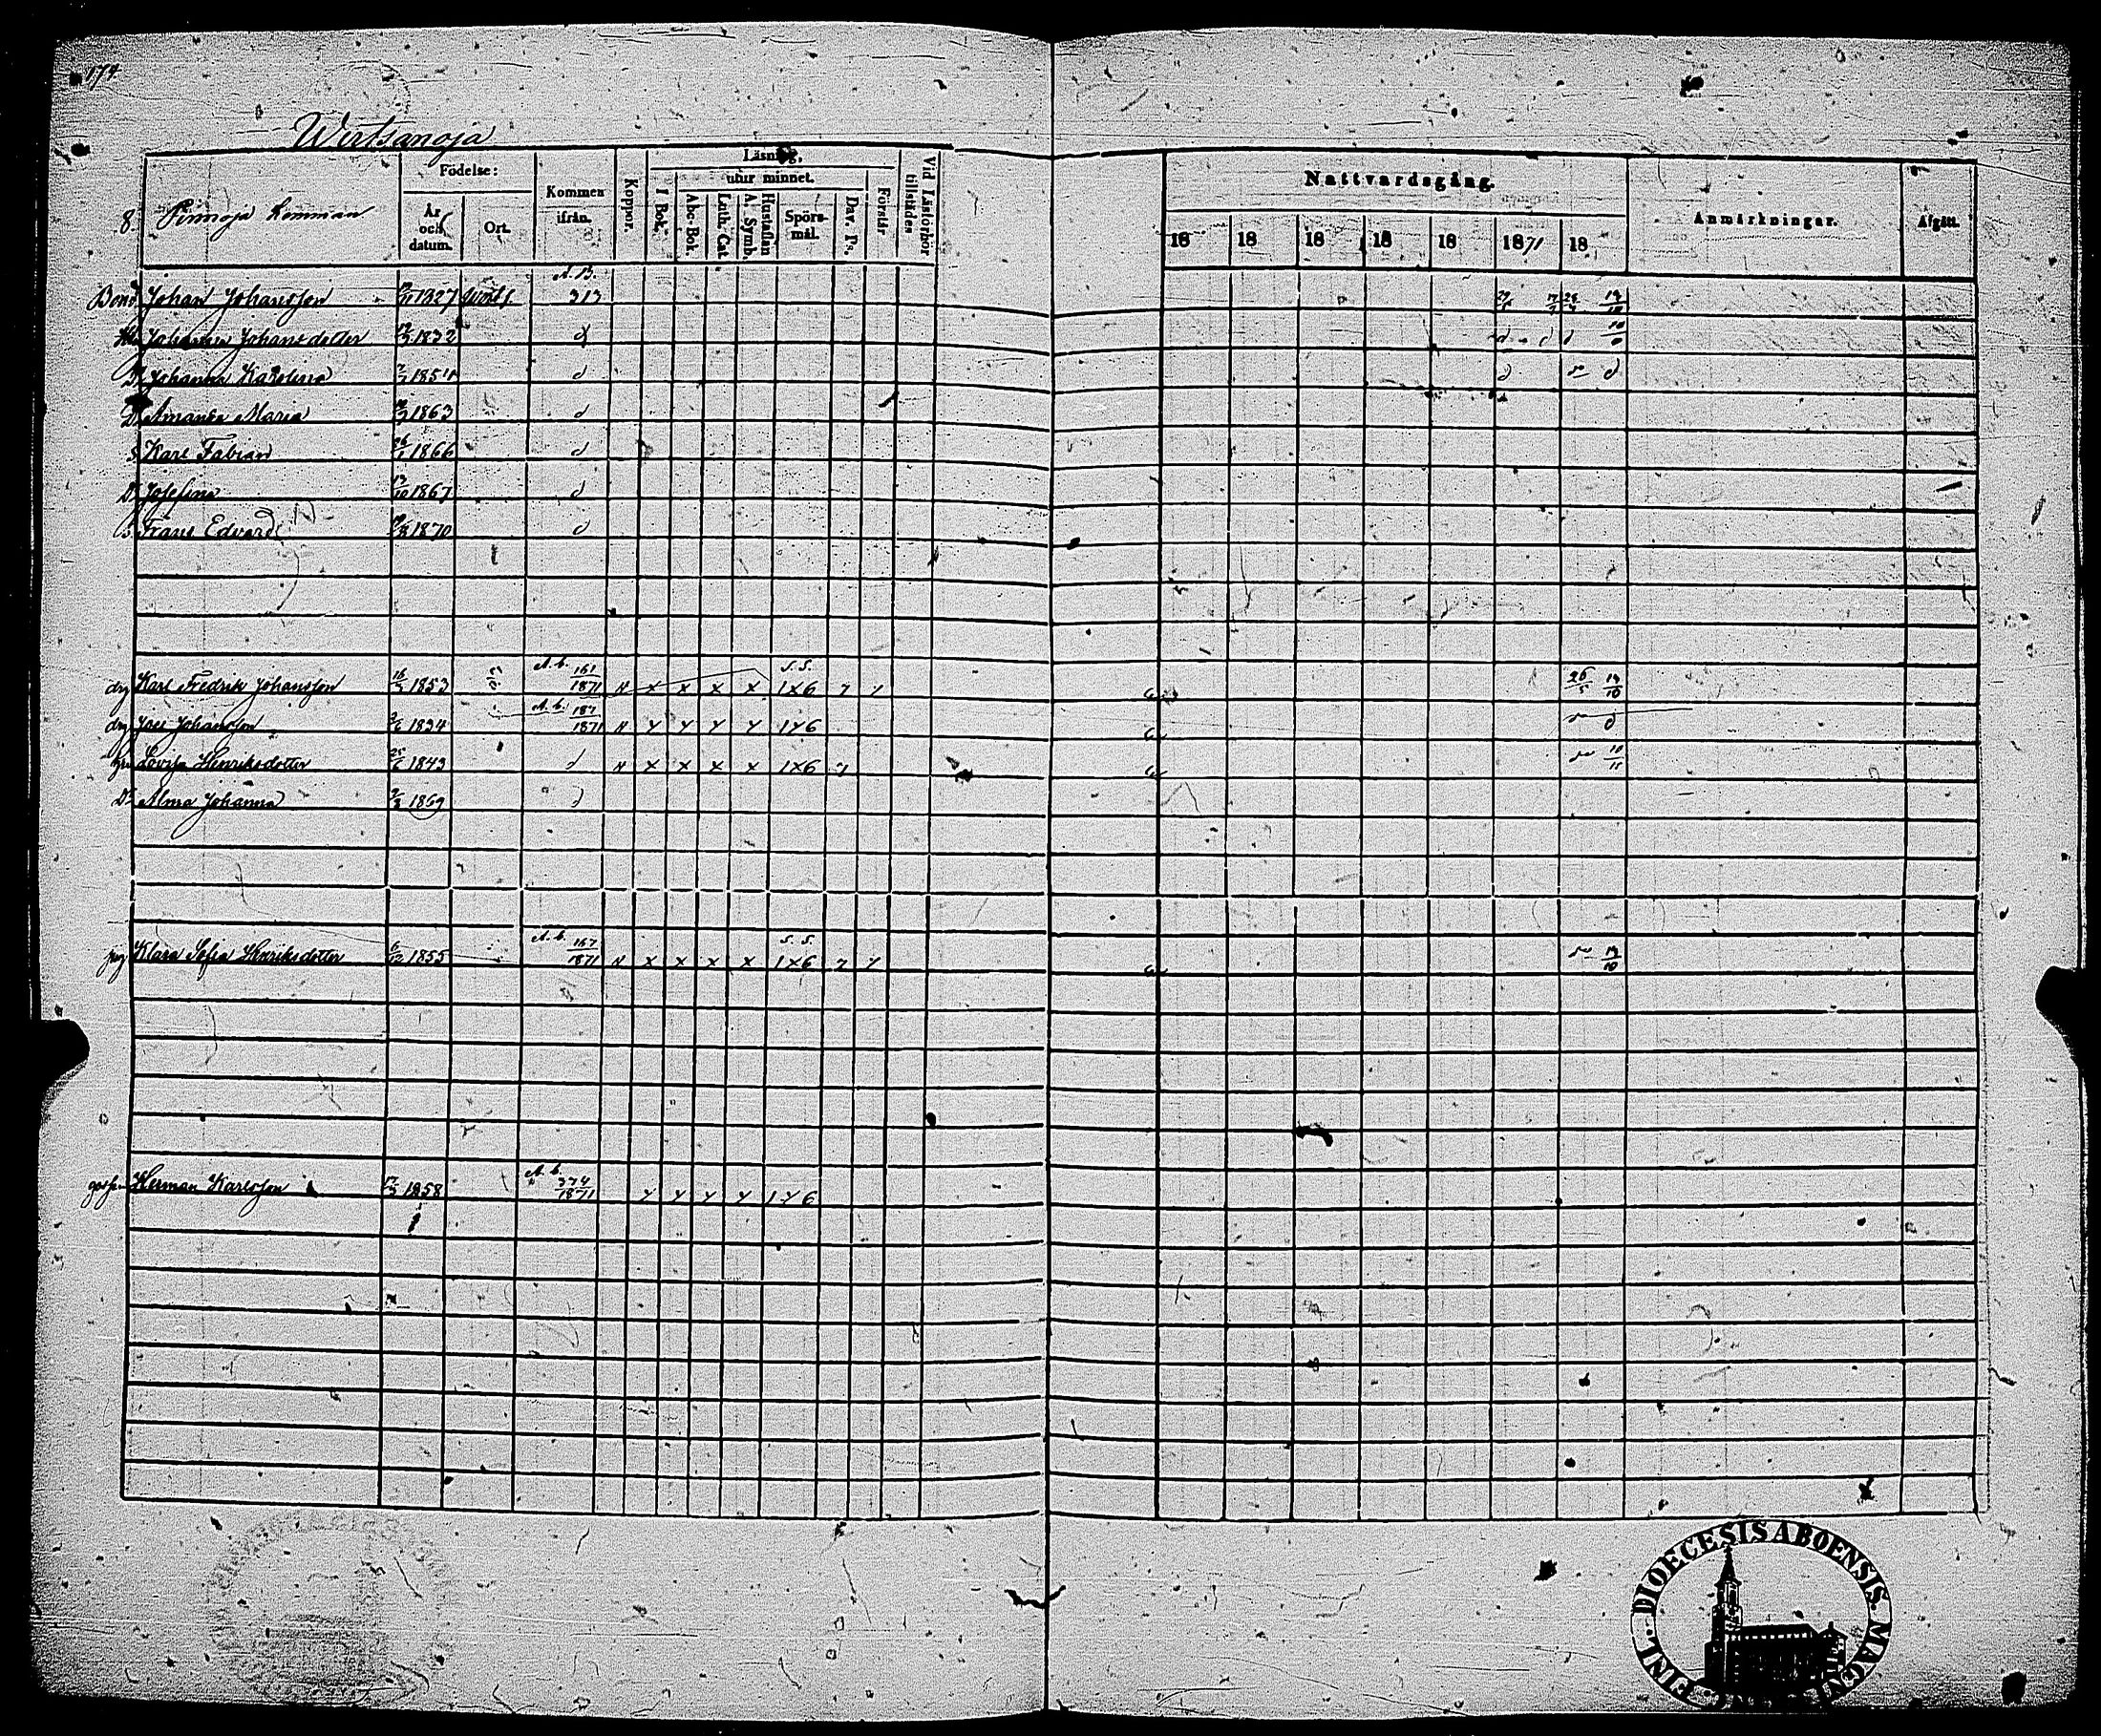 174
Wirtsanoja
8. Pimoja Lemman
Födelse:
År och datum.
Ort.
Kommen ifrån.
Koppor.
Läsning,
I Bok.
utur minnet.
Abc-Bok.
Luth. Cat.
A. Symb.
Hustaflan
Spörsmål.
Dav. Ps.
Förstår.
Vid Läsförhör tillstädes
Nattvardsgång.
18 18 18 18 18 1871 18
Anmärkningar.
Afgått.
Bond Johan Johansson 1827 A. B. 313
Johanna Johansdotter 19/3 1832 d
D. Johanna Karolina d
D. Amanda Maria 1863 d
S. Karl Fabian 1866 d
D. Josefina 1867 d
S. Frans Edvard 1870 d
drg Karl Fredrik Johansson 1853 A. b. 161/1871 x x x x s. s. 1x6 7 26/5 19/10
drg Johansson 1834 A. b. 187/1871 1x6 d
Lovisa Henriksdotter 25/6 1843 d x x x x 1x6
Dr Alma Johanna 1869 d
pig Klara Sofia Henriksdotter 1855 A. b. 167/1871 x x x x s. s. 1x6 19/10
Herman Karlsson 1858 A. b. 374/1871 1x6
DIOECESIS ABOENSIS. MAGNI DUC. FINL.